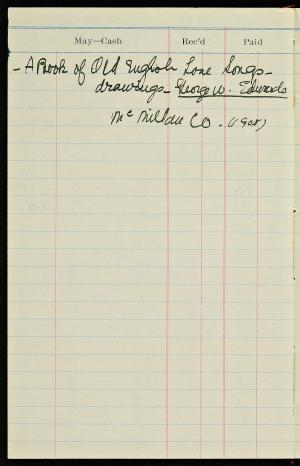 May—Cash Rec'd Paid
- A Book of Old English Love Songs -
drawings - George W. Edwards
McMillan Co -